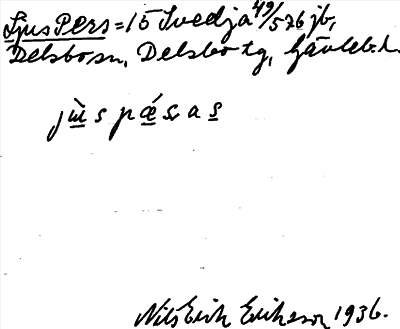 Ljus Pers = 15 Svedja 49/576 jb,
Delsbo sn, Delsbo tg, Gävleb. l.
jùs pǽsas
Nils Erik Erikson 1936.